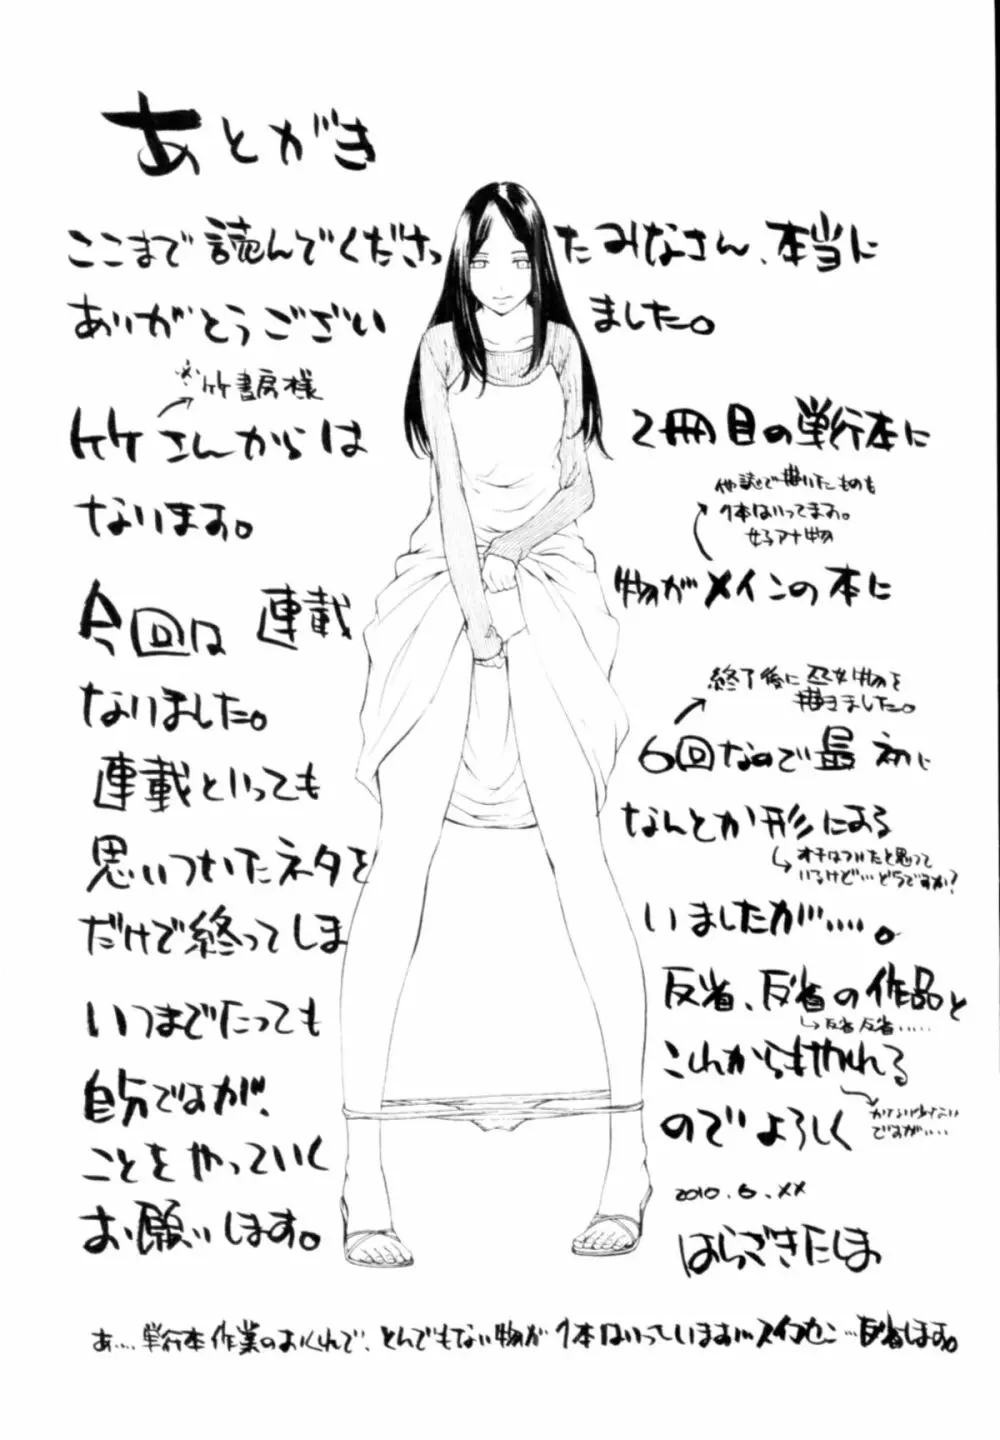 あとがき
ここまで読んでくださったみなさん、本当に
ありがとうございました。
※竹書房様
竹さんからは2冊目の単行本に
なります。
他誌で描いたものも
1本はいってます。
女子アナ物
今回は連載物がメインの本に
なりました。
終了後に巫女物を
描きました。
連載といっても6回なので最初に
思いついたネタをなんとか形にある
オチはついたと思って
いるけど…どうですか?
だけで終ってしまいましたが……。
いつまでたっても反省、反省の作品と
反省反省……
自分ですが、これからもやれる
ことをやっていくのでよろしく
ですが……
お願いします。
2010.6.××
はらざきたくま
あ…単行本作業のおくれで、とんでもない物が1本はいっています…スイマセン…反省します。